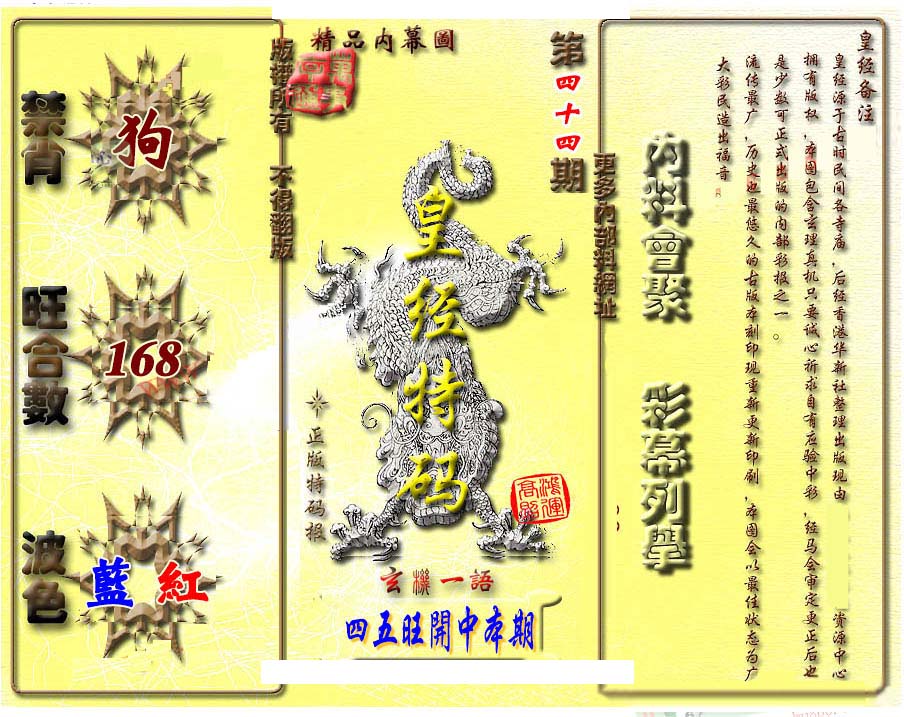 精品內幕圖
版權所有 不得翻版
禁肖
狗
旺合數
168
波色
藍 紅
皇经特码
正版特码报
鴻運高照
玄機一語
四五旺開中本期
第四十四期
更多內部料網址
内料會聚 彩幕列舉
皇经备注
皇经源于古时民间各寺庙,后经香港华新社整理出版现由 资源中心
拥有版权,本图包含玄理真机只要诚心祈求自有应验中彩,经马会审定更正后也
是少数可正式出版的内部彩报之一。
流传最广,历史也最悠久的古版本刻印现重新更新印刷,本图会以最佳状态为广
大彩民造出福音